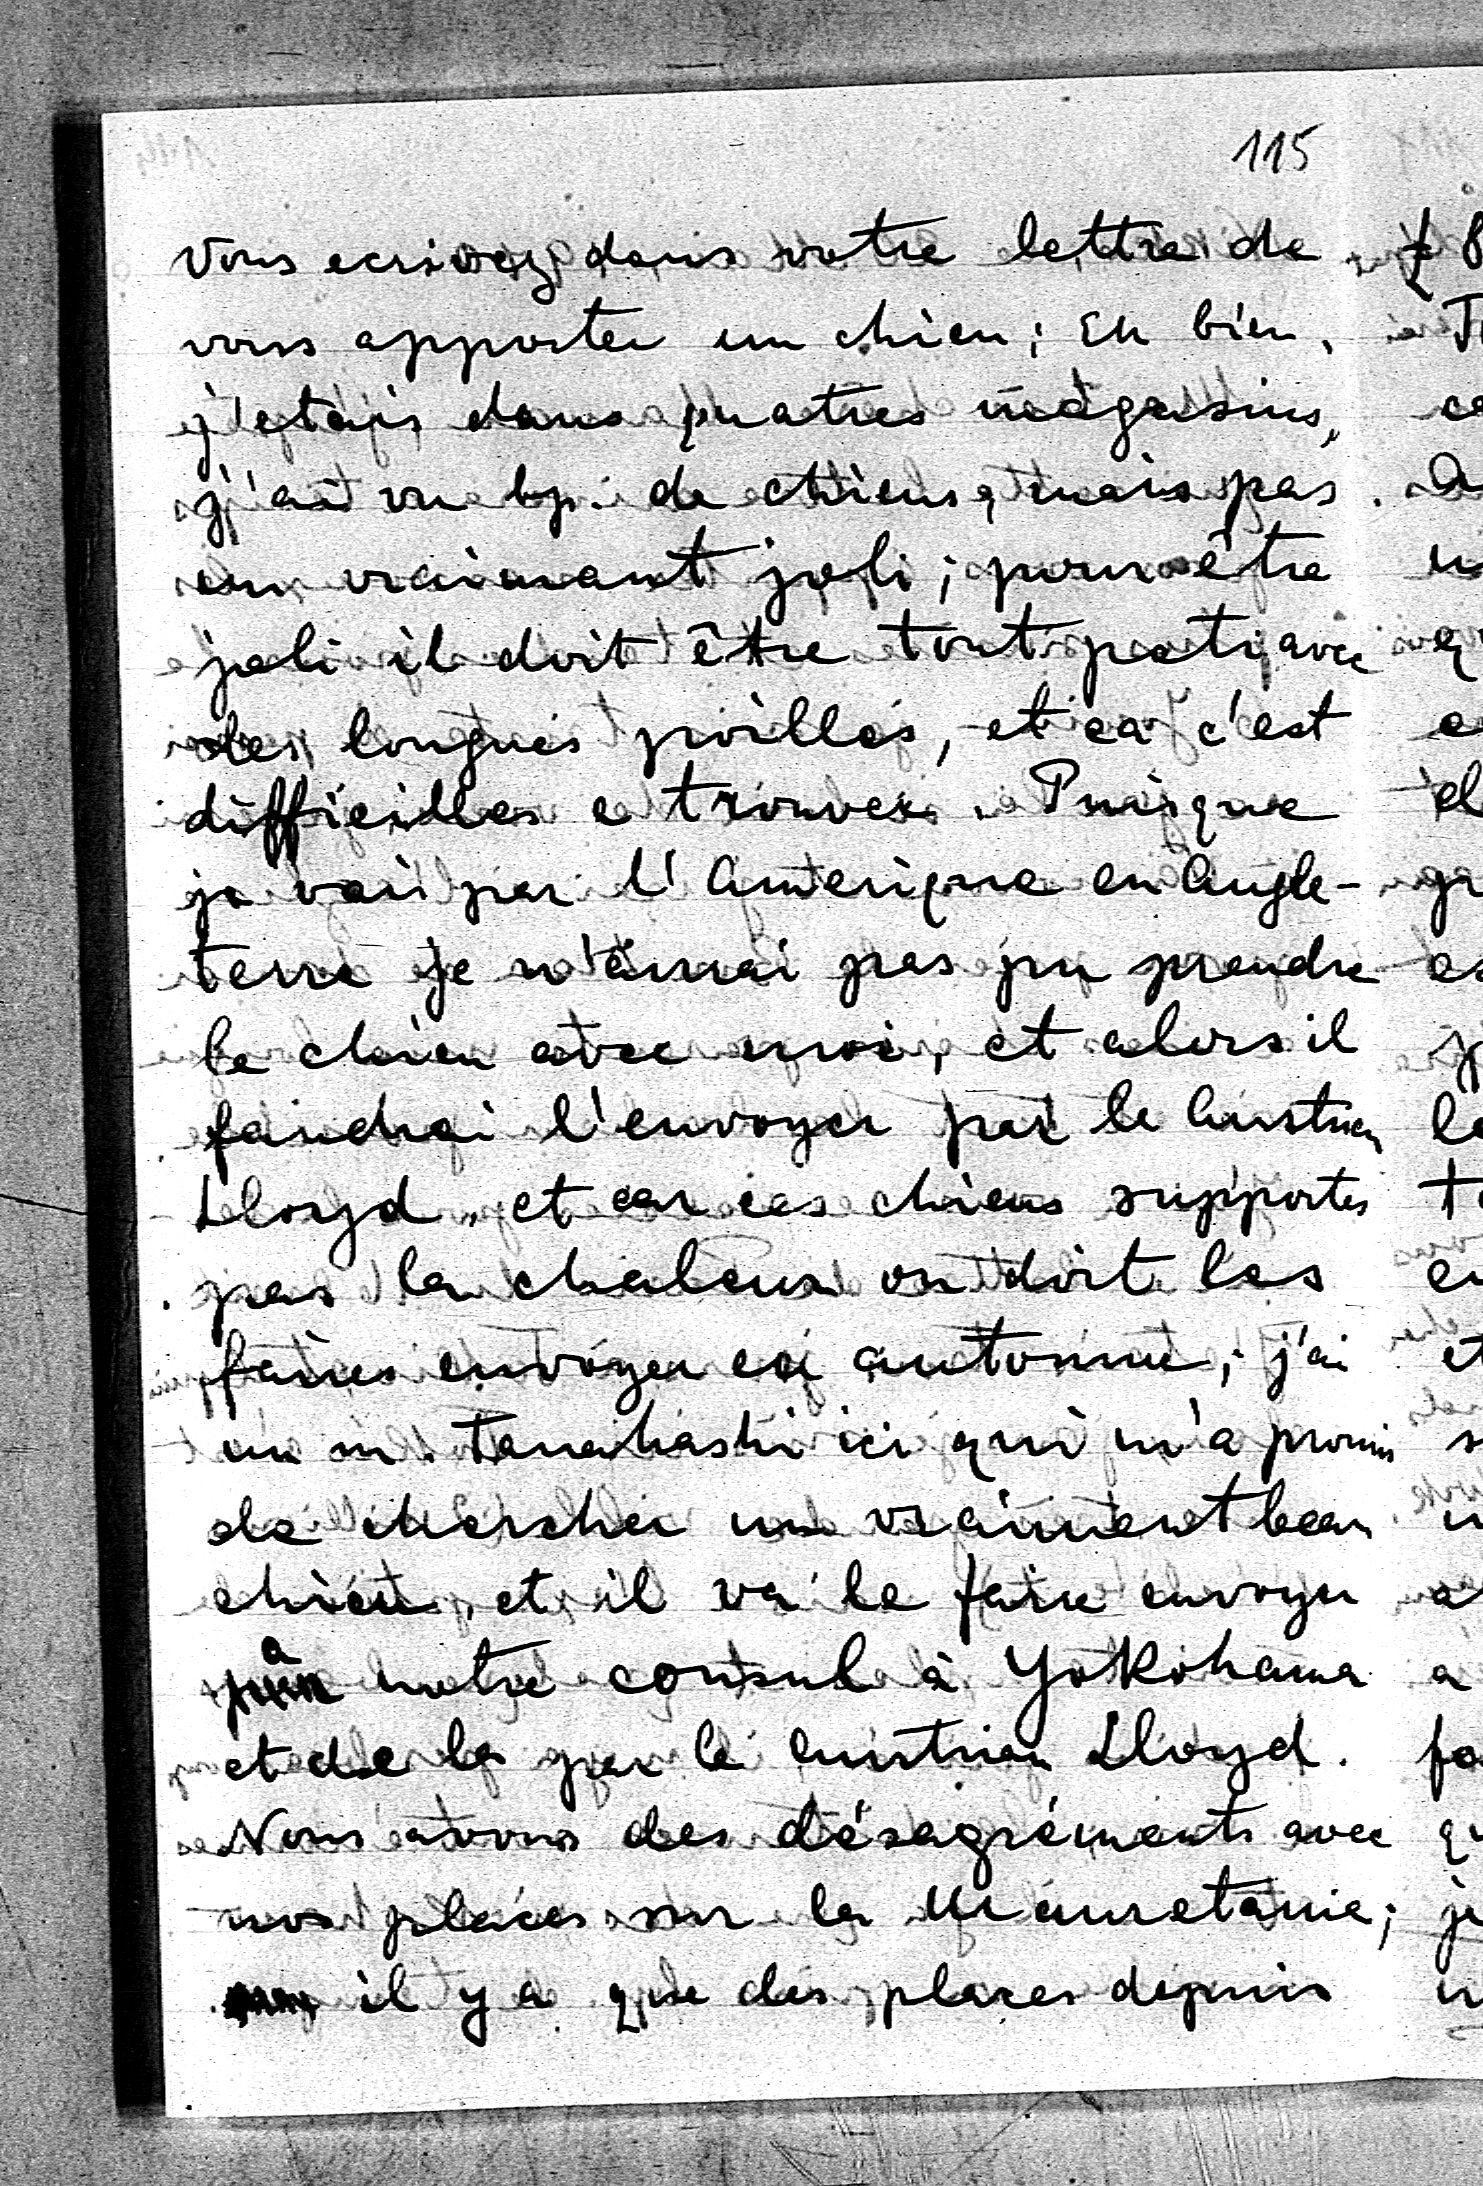 115
Vous ecrivez dans votre lettre de
vous apporter un chien; Eh bien,
j'etais dans quatres magasins,
j'ai vu bp. de chiens, mais pas
un vraimant joli; pour être
joli il doit être tout peti avec
des longues poilles, et ca c'est
difficilles a trouver. Puisque
je vai par l'Amerique en Angle-
terre je n'aurai pas pu prendre
le chien avec moi, et alors il
faudrai l'envoyer par le Austrien
Lloyd, et car ces chiens supportes
pas la chaleur on doit les
faires envoyer en automne; j'ai
un m. Tanahashi ici qui m'a promis
de chercher un vraiment beau
chien, et il va le faire envoyer
a notre consul à Yokohama
et de la par le Austrien Lloyd.
Nous avons des désagréments avec
nos places sur la Mauretanie;
il y a que des places depuis